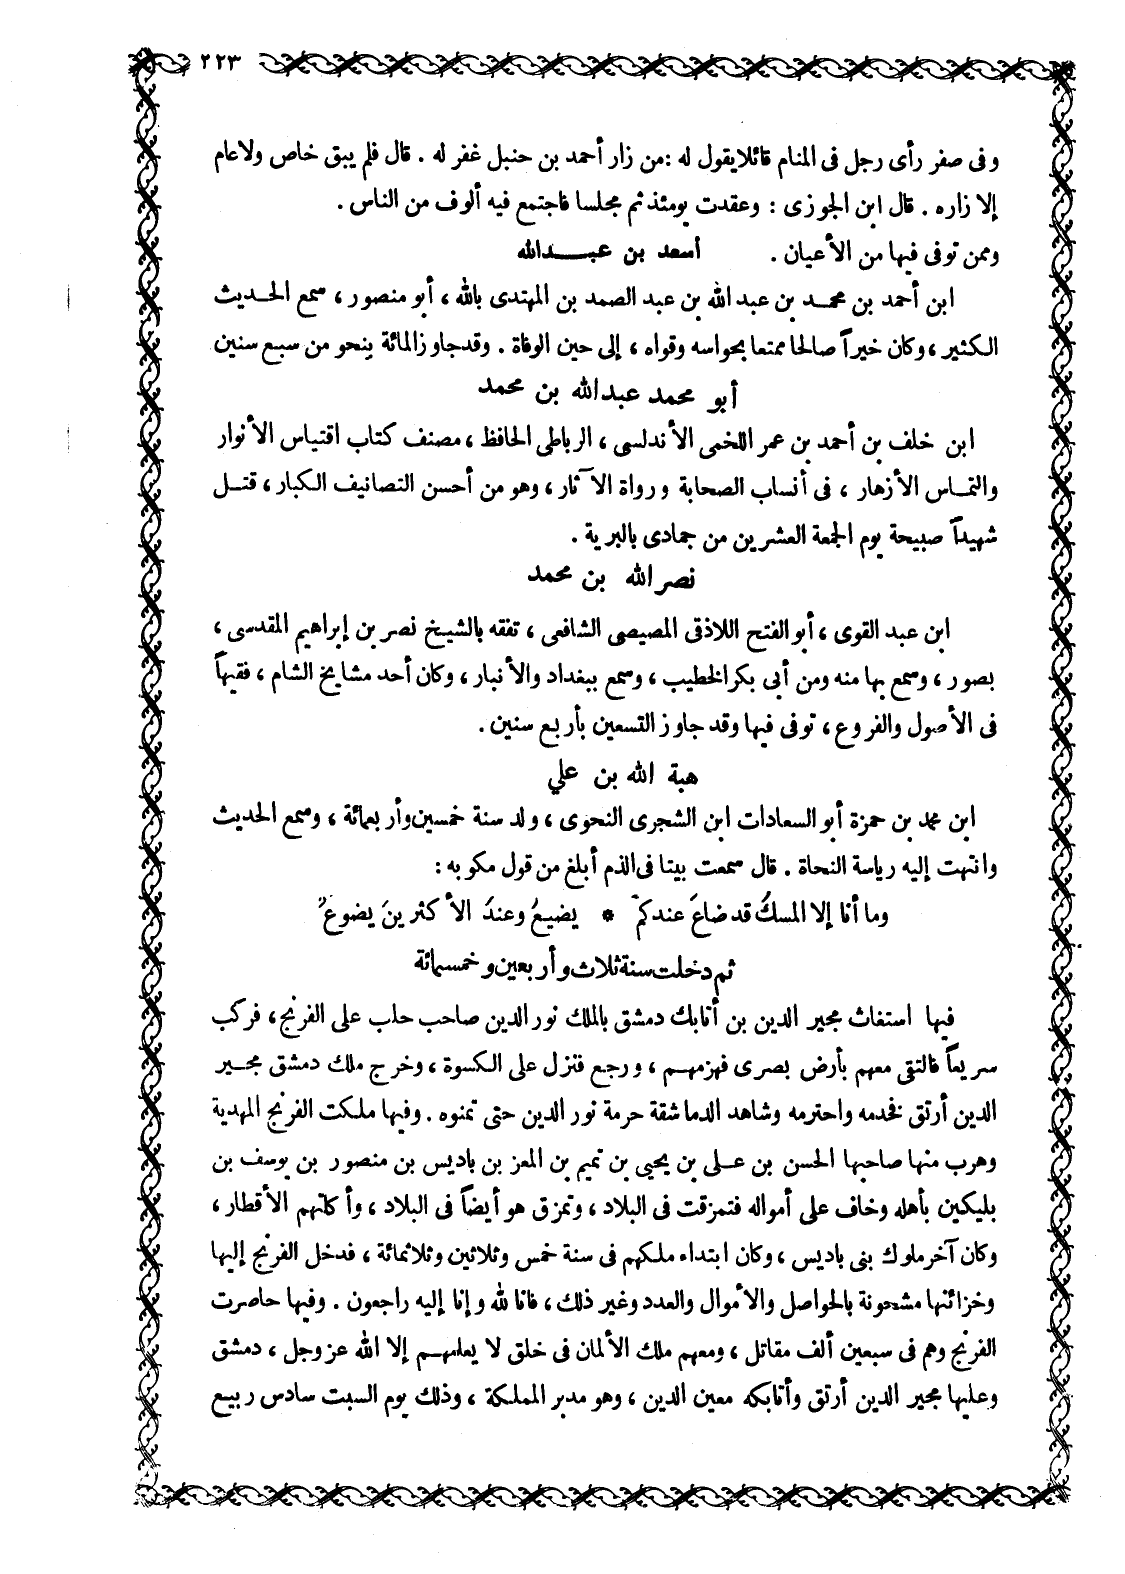 ٢٢٣
وفى صفر رأى رجل فى المنام قائلا يقول له : من زار أحمد بن حنبل غفر له . قال فلم يبق خاص ولا عام
إلا زاره . قال ابن الجوزى : وعقدت يومئذ ثم مجلسا فاجتمع فيه ألوف من الناس .
وممن توفى فيها من الأعيان . أسعد بن عبدالله
ابن أحمد بن محمد بن عبد الله بن عبد الصمد بن المهتدى بالله ، أبو منصور ، سمع الحديث
الكثير ، وكان خيراً صالحا ممتعا بحواسه وقواه ، إلى حين الوفاة . وقد جاوز المائة بنحو من سبع سنين
أبو محمد عبدالله بن محمد
ابن خلف بن أحمد بن عمر اللخمى الأندلسى ، الرباطى الحافظ ، مصنف كتاب اقتباس الأنوار
والتماس الأزهار ، فى أنساب الصحابة ورواة الآثار ، وهو من أحسن التصانيف الكبار ، قتل
شهيداً صبيحة يوم الجمعة العشرين من جمادى بالبرية .
نصر الله بن محمد
ابن عبد القوى ، أبو الفتح اللاذقى المصيصى الشافعى ، تفقه بالشيخ نصر بن إبراهيم المقدسى ،
بصور ، وسمع بها منه ومن أبى بكر الخطيب ، وسمع ببغداد والأنبار ، وكان أحد مشايخ الشام ، فقيهاً
فى الأصول والفروع ، توفى فيها وقد جاوز التسعين بأربع سنين .
هبة الله بن علي
ابن محمد بن حمزة أبو السعادات ابن الشجرى النحوى ، ولد سنة خمسين وأربعمائة ، وسمع الحديث
وانتهت إليه رياسة النحاة . قال سمعت بيتا فى الذم أبلغ من قول مكوبه :
وما أنا إلا المسكُ قد ضاعَ عندكم * يضيعُ وعندَ الأكثرينَ يضوعُ
ثم دخلت سنة ثلاث وأربعين وخمسمائة
فيها استغاث مجير الدين بن أتابك دمشق بالملك نور الدين صاحب حلب على الفرنج ، فركب
سريعاً فالتقى معهم بأرض بصرى فهزمهم ، ورجع فنزل على الكسوة ، وخرج ملك دمشق مجير
الدين أرتق فخدمه واحترمه وشاهد الدماشقة حرمة نور الدين حتى تمنوه . وفيها ملكت الفرنج المهدية
وهرب منها صاحبها الحسن بن على بن يحيى بن تميم بن المعز بن باديس بن منصور بن يوسف بن
بليكين بأهله وخاف على أمواله فتمزقت فى البلاد ، وتمزق هو أيضاً فى البلاد ، وأكلتهم الأقطار ،
وكان آخر ملوك بنى باديس ، وكان ابتداء ملكهم فى سنة خمس وثلاثين وثلاثمائة ، فدخل الفرنج إليها
وخزائنها مشحونة بالحواصل والأموال والعدد وغير ذلك ، فانا لله وإنا إليه راجعون . وفيها حاصرت
الفرنج وهم فى سبعين ألف مقاتل ، ومعهم ملك الألمان فى خلق لا يعلمهم إلا الله عز وجل ، دمشق
وعليها مجير الدين أرتق وأتابكه معين الدين ، وهو مدبر المملكة ، وذلك يوم السبت سادس ربيع